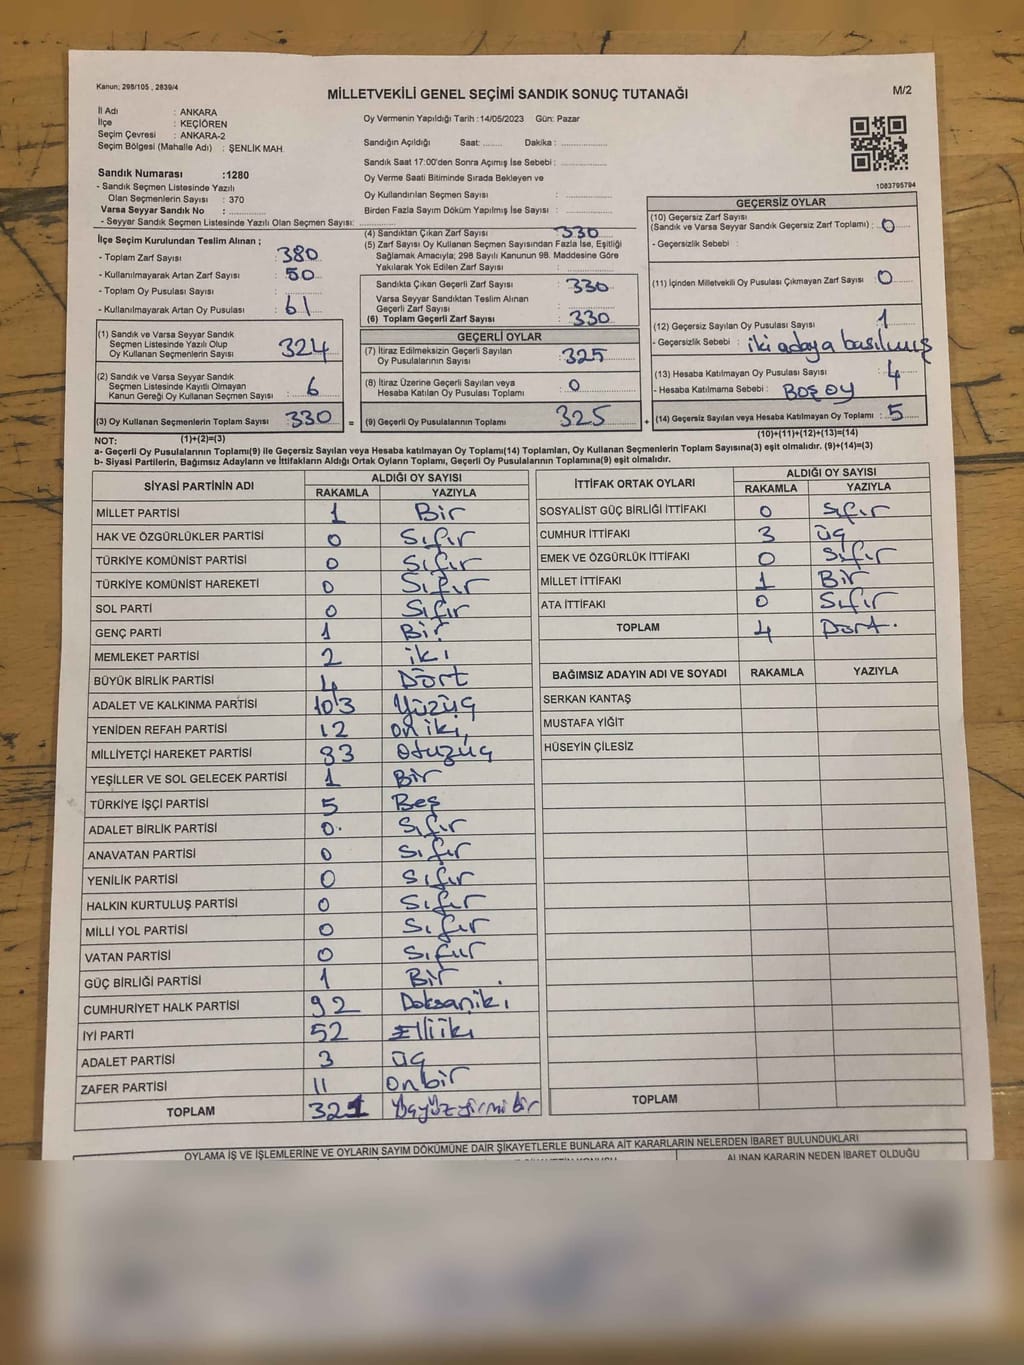 Kanun; 298/105 , 2839/4
MİLLETVEKİLİ GENEL SEÇİMİ SANDIK SONUÇ TUTANAĞI
M/2
İl Adı : ANKARA
İlçe : KEÇİÖREN
Seçim Çevresi : ANKARA-2
Seçim Bölgesi (Mahalle Adı) : ŞENLİK MAH.
Oy Vermenin Yapıldığı Tarih :14/05/2023 Gün: Pazar
Sandığın Açıldığı Saat: Dakika :
Sandık Saat 17:00'den Sonra Açımış İse Sebebi :
Oy Verme Saati Bitiminde Sırada Bekleyen ve
Oy Kullandırılan Seçmen Sayısı :
Birden Fazla Sayım Döküm Yapılmış İse Sayısı :
1083795794
Sandık Numarası :1280
- Sandık Seçmen Listesinde Yazılı
Olan Seçmenlerin Sayısı : 370
Varsa Seyyar Sandık No :
- Seyyar Sandık Seçmen Listesinde Yazılı Olan Seçmen Sayısı:
İlçe Seçim Kurulundan Teslim Alınan ;
- Toplam Zarf Sayısı : 380
- Kullanılmayarak Artan Zarf Sayısı : 50
- Toplam Oy Pusulası Sayısı :
- Kullanılmayarak Artan Oy Pusulası : 61
(1) Sandık ve Varsa Seyyar Sandık
Seçmen Listesinde Yazılı Olup
Oy Kullanan Seçmenlerin Sayısı : 324
(2) Sandık ve Varsa Seyyar Sandık
Seçmen Listesinde Kayıtlı Olmayan
Kanun Gereği Oy Kullanan Seçmen Sayısı : 6
(3) Oy Kullanan Seçmenlerin Toplam Sayısı : 330
(1)+(2)=(3)
(4) Sandıktan Çıkan Zarf Sayısı : 330
(5) Zarf Sayısı Oy Kullanan Seçmen Sayısından Fazla İse, Eşitliği
Sağlamak Amacıyla; 298 Sayılı Kanunun 98. Maddesine Göre
Yakılarak Yok Edilen Zarf Sayısı :
Sandıkta Çıkan Geçerli Zarf Sayısı : 330
Varsa Seyyar Sandıktan Teslim Alınan
Geçerli Zarf Sayısı :
(6) Toplam Geçerli Zarf Sayısı : 330
GEÇERLİ OYLAR
(7) İtiraz Edilmeksizin Geçerli Sayılan
Oy Pusulalarının Sayısı : 325
(8) İtiraz Üzerine Geçerli Sayılan veya
Hesaba Katılan Oy Pusulası Toplamı : 0
= (9) Geçerli Oy Pusulalarının Toplamı : 325 +
GEÇERSİZ OYLAR
(10) Geçersiz Zarf Sayısı
(Sandık ve Varsa Seyyar Sandık Geçersiz Zarf Toplamı) : 0
- Geçersizlik Sebebi :
(11) İçinden Milletvekili Oy Pusulası Çıkmayan Zarf Sayısı : 0
(12) Geçersiz Sayılan Oy Pusulası Sayısı : 1
- Geçersizlik Sebebi : iki adaya basılmış
(13) Hesaba Katılmayan Oy Pusulası Sayısı : 4
- Hesaba Katılmama Sebebi : Boş oy
(14) Geçersiz Sayılan veya Hesaba Katılmayan Oy Toplamı : 5
(10)+(11)+(12)+(13)=(14)
NOT:
a- Geçerli Oy Pusulalarının Toplamı(9) ile Geçersiz Sayılan veya Hesaba Katılmayan Oy Toplamı(14) Toplamları, Oy Kullanan Seçmenlerin Toplam Sayısına(3) eşit olmalıdır. (9)+(14)=(3)
b- Siyasi Partilerin, Bağımsız Adayların ve İttifakların Aldığı Ortak Oyların Toplamı, Geçerli Oy Pusulalarının Toplamına(9) eşit olmalıdır.
SİYASİ PARTİNİN ADI ALDIĞI OY SAYISI
RAKAMLA YAZIYLA
MİLLET PARTİSİ 1 Bir
HAK VE ÖZGÜRLÜKLER PARTİSİ 0 Sıfır
TÜRKİYE KOMÜNİST PARTİSİ 0 Sıfır
TÜRKİYE KOMÜNİST HAREKETİ 0 Sıfır
SOL PARTİ 0 Sıfır
GENÇ PARTİ 1 Bir
MEMLEKET PARTİSİ 2 iki
BÜYÜK BİRLİK PARTİSİ 4 Dört
ADALET VE KALKINMA PARTİSİ 103 Yüzüç
YENİDEN REFAH PARTİSİ 12 on iki
MİLLİYETÇİ HAREKET PARTİSİ 33 Otuzüç
YEŞİLLER VE SOL GELECEK PARTİSİ 1 Bir
TÜRKİYE İŞÇİ PARTİSİ 5 Beş
ADALET BİRLİK PARTİSİ 0 Sıfır
ANAVATAN PARTİSİ 0 Sıfır
YENİLİK PARTİSİ 0 Sıfır
HALKIN KURTULUŞ PARTİSİ 0 Sıfır
MİLLİ YOL PARTİSİ 0 Sıfır
VATAN PARTİSİ 0 Sıfır
GÜÇ BİRLİĞİ PARTİSİ 1 Bir
CUMHURİYET HALK PARTİSİ 92 Doksaniki
İYİ PARTİ 52 Elliiki
ADALET PARTİSİ 3 üç
ZAFER PARTİSİ 11 onbir
TOPLAM 321 Üçyüzyirmi bir
İTTİFAK ORTAK OYLARI ALDIĞI OY SAYISI
RAKAMLA YAZIYLA
SOSYALİST GÜÇ BİRLİĞİ İTTİFAKI 0 Sıfır
CUMHUR İTTİFAKI 3 üç
EMEK VE ÖZGÜRLÜK İTTİFAKI 0 Sıfır
MİLLET İTTİFAKI 1 Bir
ATA İTTİFAKI 0 Sıfır
TOPLAM 4 Dört.
BAĞIMSIZ ADAYIN ADI VE SOYADI RAKAMLA YAZIYLA
SERKAN KANTAŞ
MUSTAFA YİĞİT
HÜSEYİN ÇİLESİZ
TOPLAM
OYLAMA İŞ VE İŞLEMLERİNE VE OYLARIN SAYIM DÖKÜMÜNE DAİR ŞİKAYETLERLE BUNLARA AİT KARARLARIN NELERDEN İBARET BULUNDUKLARI
ALINAN KARARIN NEDEN İBARET OLDUĞU